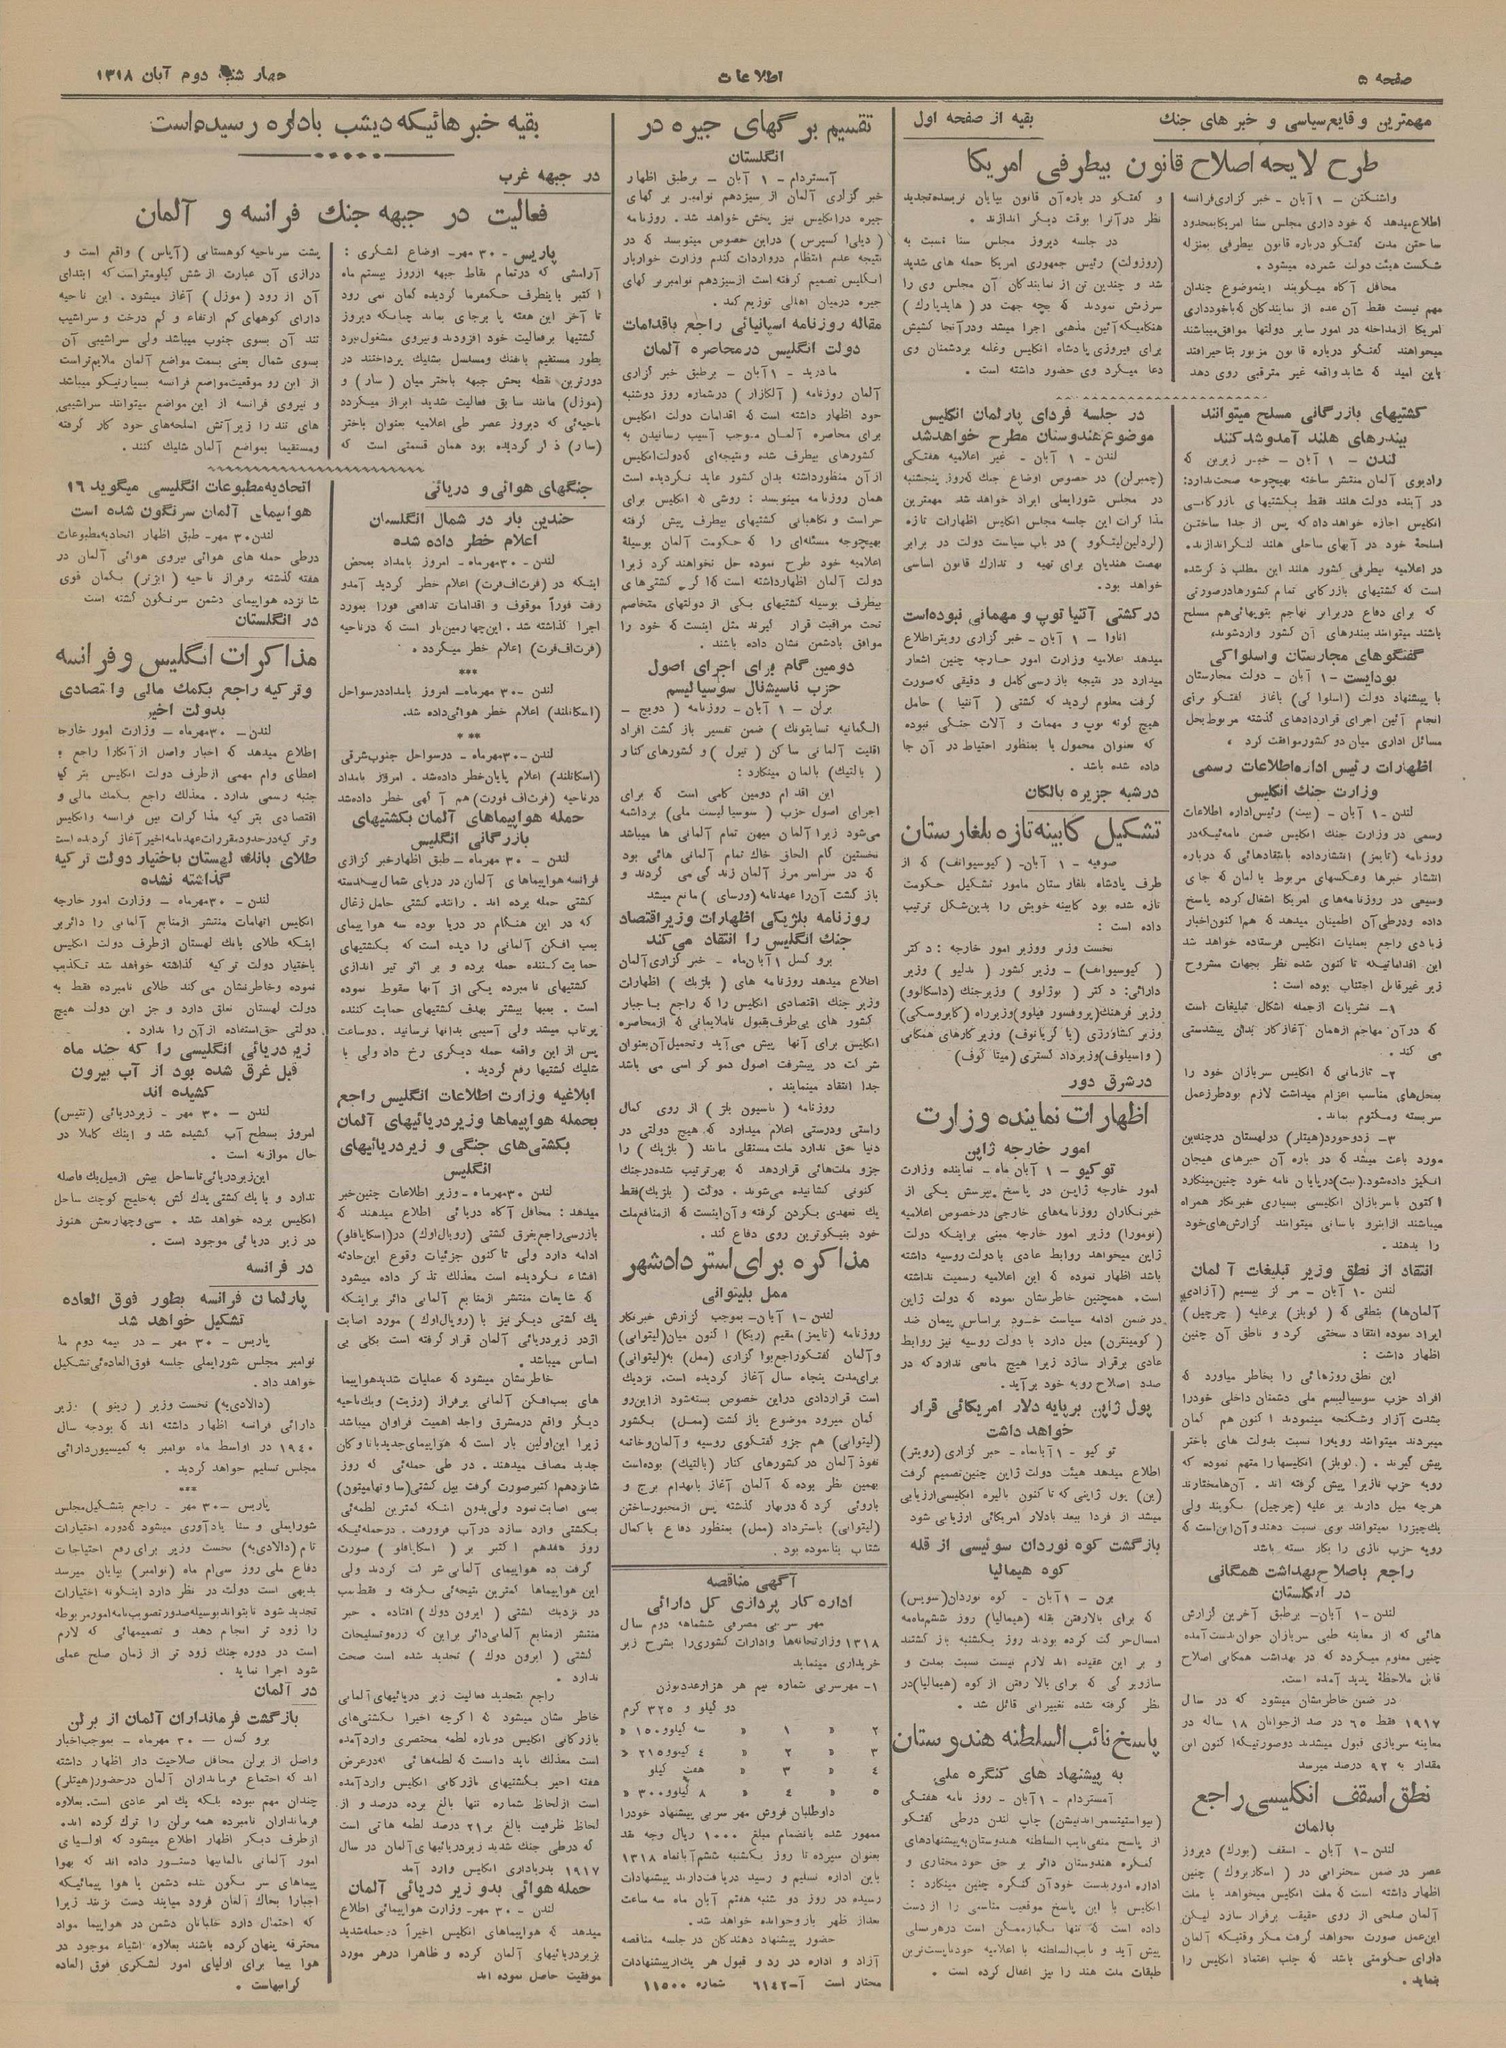 صفحه ۵
اطلاعات
چهارشنبه دوم آبان ۱۳۱۸
مهمترین وقایع سیاسی و خبر های جنك
بقیه از صفحه اول
طرح لایحه اصلاح قانون بیطرفی امریکا
واشنگتن - ۱ آبان - خبر گزاری فرانسه
اطلاع میدهد که خود داری مجلس سنا امریکا بمحدود
ساختن مدت گفتگو درباره قانون بیطرفی بمنزله
شکست هیئت دولت شمرده میشود.
محافل آگاه میگویند اینموضوع چندان
مهم نیست فقط آن عده از نمایندگان که باخودداری
امریکا از مداخله در امور سایر دولتها موافق میباشند
میخواهند گفتگو درباره قانون مزبور بتاخیر افتد
باین امید که شاید واقعه غیر مترقبی روی دهد
و گفتگو در باره آن قانون بپایان نرسیده تجدید
نظر در آنرا بوقت دیگر اندازند.
در جلسه دیروز مجلس سنا نسبت به
(روزولت) رئیس جمهوری امریکا حمله های شدید
شد و چندین تن از نمایندگان آن مجلس وی را
سرزنش نمودند که بچه جهت در (هایدپارك)
هنگامیکه آئین مذهبی اجرا میشد و در آنجا کشیش
برای فیروزی پادشاه انگلیس و غلبه بر دشمنان وی
دعا میکرد وی حضور داشته است.
کشتیهای بازرگانی مسلح میتوانند
ببندرهای هلند آمد و شد کنند
لندن - ۱ آبان - خبر زیرین که
رادیوی آلمان منتشر ساخته بهیچوجه صحت ندارد:
در آینده دولت هلند فقط بکشتیهای بازرگانی
انگلیس اجازه خواهد داد که پس از جدا ساختن
اسلحه خود در آبهای ساحلی هلند لنگر اندازند.
در اعلامیه بیطرفی کشور هلند این مطلب ذکر شده
است که کشتیهای بازرگانی تمام کشورها در صورتی
که برای دفاع در برابر تهاجم بتوپهائی هم مسلح
باشند میتوانند ببندرهای آن کشور وارد شوند.
گفتگوهای مجارستان و اسلواکی
بوداپست - ۱ آبان - دولت مجارستان
با پیشنهاد دولت (اسلواکی) باغاز گفتگو برای
انجام آئین اجرای قراردادهای گذشته مربوط بحل
مسائل اداری میان دو کشور موافقت کرد.
اظهارات رئیس اداره اطلاعات رسمی
وزارت جنك انگلیس
لندن - ۱ آبان - (بیت) رئیس اداره اطلاعات
رسمی در وزارت جنك انگلیس ضمن نامه ئیکه در
روزنامه (تایمز) انتشار داده بانتقادهائی که درباره
انتشار خبرها و عکسهای مربوط بالمان که جای
وسیعی در روزنامه های امریکا اشغال کرده پاسخ
داده و در طی آن اطمینان میدهد که هم اکنون اخبار
زیادی راجع بعملیات انگلیس فرستاده خواهد شد
این اقداماتیکه تا کنون شده نظر بجهات مشروح
زیر غیر قابل اجتناب بوده است:
۱- نشریات از جمله اشکال تبلیغات است
که در آن مهاجم از همان آغاز کار بدان پیشدستی
می کند.
۲- تازمانی که انگلیس سربازان خود را
بمحل های مناسب اعزام میداشت لازم بود طرز عمل
سربسته و مکتوم بماند.
۳- زد و خورد (هیتلر) در لهستان در چندین
مورد باعث میشد که در باره آن خبرهای هیجان
انگیز داده شود. (بیت) در پایان نامه خود چنین مینگارد
اکنون با سربازان انگلیسی بسیاری خبرنگار همراه
میباشند از اینرو باسانی میتوانند گزارش های خود
را بدهند.
انتقاد از نطق وزیر تبلیغات آلمان
لندن - ۱ آبان - مرکز بیسیم (آزادی
آلمان‌ها) بنطقی که (گوبلز) بر علیه (چرچیل)
ایراد نموده انتقاد سختی کرد و ناطق آن چنین
اظهار داشت:
این نطق روزهائی را بخاطر میاورد که
افراد حزب سوسیالیسم ملی دشمنان داخلی خود را
بشدت آزار و شکنجه مینمودند اکنون هم گمان
میبردند میتوانند رویه را نسبت بدولت های باختر
پیش گیرند. (گوبلز) انگلیسها را متهم نموده که
رویه حزب نازیرا پیش گرفته اند. آن‌ها مختارند
هرچه میل دارند بر علیه (چرچیل) بگویند ولی
یك چیز را میتوانند بوی نسبت دهند و آن این است که
رویه حزب نازی را بکار بسته باشد
راجع باصلاح بهداشت همگانی
در انگلستان
لندن - ۱ آبان - برطبق آخرین گزارش
هائی که از معاینه طبی سربازان جوان بدست آمده
چنین معلوم میگردد که در بهداشت همگانی اصلاح
قابل ملاحظهٔ پدید آمده است.
در ضمن خاطرنشان میشود که در سال
۱۹۱۷ فقط ۶۵ در صد از جوانان ۱۸ ساله در
معاینه سربازی قبول میشدند در صورتیکه اکنون این
مقدار به ۹۲ درصد میرسد
نطق اسقف انگلیسی راجع
بالمان
لندن - ۱ آبان - اسقف (یورك) دیروز
عصر در ضمن سخنرانی در (اسکاربروك) چنین
اظهار داشته است که ملت انگلیس میخواهد با ملت
آلمان صلحی از روی حقیقت برقرار سازد لیکن
این عمل صورت نخواهد گرفت مگر وقتیکه آلمان
دارای حکومتی باشد که جلب اعتماد انگلیس را
بنماید.
در جلسه فردای پارلمان انگلیس
موضوع هندوستان مطرح خواهد شد
لندن - ۱ آبان - غیر اعلامیه هفتگی
(چمبرلن) در خصوص اوضاع جنك که روز پنجشنبه
در مجلس شورایملی ایراد خواهد شد مهمترین
مذاکرات این جلسه مجلس انگلیس اظهارات تازه
(لردلین لیتگوو) در باب سیاست دولت در برابر
نهضت هندیان برای تهیه و تدارك قانون اساسی
خواهد بود.
در کشتی آتنیا توپ و مهماتی نبوده است
اتاوا - ۱ آبان - خبر گزاری رویتر اطلاع
میدهد اعلامیه وزارت امور خارجه چنین اشعار
میدارد در نتیجه بازرسی کامل و دقیقی که صورت
گرفت معلوم گردید که کشتی (آتنیا) حامل
هیچ گونه توپ و مهمات و آلات جنگی نبوده
که بعنوان محمول یا بمنظور احتیاط در آن جا
داده شده باشد.
در شبه جزیره بالکان
تشکیل کابینه تازه بلغارستان
صوفیه - ۱ آبان - (کیوسیوانف) که از
طرف پادشاه بلغارستان مامور تشکیل حکومت
تازه شده بود کابینه خویش را بدین شکل ترتیب
داده است:
نخست وزیر و وزیر امور خارجه: دکتر
(کیوسیوانف) - وزیر کشور (ندلیو) وزیر
دارائی: دکتر (بوژلوو) وزیر جنك (داسکالوو)
وزیر فرهنك (پروفسور فیلوو) وزیر راه (کابروسکی)
وزیر کشاورزی (باگریانوف) وزیر کارهای همگانی
(واسیلوف) وزیر دادگستری (میتاکوف)
در شرق دور
اظهارات نماینده وزارت
امور خارجه ژاپن
توکیو - ۱ آبان ماه - نماینده وزارت
امور خارجه ژاپن در پاسخ پرسش یکی از
خبرنگاران روزنامه های خارجی در خصوص اعلامیه
(نومورا) وزیر امور خارجه مبنی بر اینکه دولت
ژاپن میخواهد روابط عادی با دولت روسیه داشته
باشد اظهار نموده که این اعلامیه رسمیت نداشته
است. همچنین خاطرنشان نموده که دولت ژاپن
در ضمن ادامه سیاست خود بر اساس پیمان ضد
(کومینترن) میل دارد با دولت روسیه نیز روابط
عادی برقرار سازد زیرا هیچ مانعی ندارد که در
صدد اصلاح رویه خود برآید.
پول ژاپن برپایه دلار امریکائی قرار
خواهد داشت
توکیو - ۱ آبانماه - خبر گزاری (رویتر)
اطلاع میدهد هیئت دولت ژاپن چنین تصمیم گرفت
(ین) پول ژاپنی که تا کنون با لیره انگلیسی ارزیابی
میشد از فردا ببعد با دلار امریکائی ارزیابی شود
بازگشت کوه نوردان سوئیسی از قله
کوه هیمالیا
برن - ۱ آبان - کوه نوردان (سویس)
که برای بالا رفتن بقله (هیمالیا) روز ششم ماه مه
امسال حرکت کرده بودند روز یکشنبه باز گشتند
و بر این عقیده اند لازم نیست نسبت بمدت و
سازوبرگی که برای بالا رفتن از کوه (هیمالیا) در
نظر گرفته شده تغییراتی قائل شد.
پاسخ نائب السلطنه هندوستان
به پیشنهاد های کنگره ملی
آمستردام - ۱ آبان - روزنامه هفتگی
(نیواستیتسمن اند نیشن) چاپ لندن درطی گفتگو
از پاسخ منفی نایب السلطنه هندوستان به پیشنهادهای
کنگره هندوستان دائر بر حق خودمختاری و
اداره امور بدست خود آن کنگره چنین مینگارد:
انگلیس با این پاسخ موقعیت مناسبی را از دست
داده است که تنها یکبار ممکن است در هر نسلی
پیش آید و نایب السلطنه با اعلامیه خود بایست ترین
طبقات ملت هند را نیز اغفال کرده است.
تقسیم برگهای جیره در
انگلستان
آمستردام - ۱ آبان - برطبق اظهار
خبر گزاری آلمان از سیزدهم نوامبر برگهای
جیره در انگلیس نیز پخش خواهد شد. روزنامه
(دیلی اکسپرس) در این خصوص مینویسد که در
نتیجه عدم انتظام در واردات گندم وزارت خواربار
انگلیس تصمیم گرفته است از سیزدهم نوامبر برگهای
جیره درمیان اهالی توزیع کند.
مقاله روزنامه اسپانیائی راجع باقدامات
دولت انگلیس در محاصره آلمان
مادرید - ۱ آبان - برطبق خبر گزاری
آلمان روزنامه (آلکازار) در شماره روز دوشنبه
خود اظهار داشته است که اقدامات دولت انگلیس
برای محاصره آلمان موجب آسیب رسانیدن به
کشورهای بیطرف شده و نتیجه‌ای که دولت انگلیس
از آن منظور داشته بدان کشور عاید نگردیده است
همان روزنامه مینویسد: روشی که انگلیس برای
حراست و نگاهبانی کشتیهای بیطرف پیش گرفته
بهیچوجه مسئله‌ای را که حکومت آلمان بوسیلهٔ
اعلامیه خود طرح نموده حل نخواهد کرد زیرا
دولت آلمان اظهار داشته است که اگر کشتی های
بیطرف بوسیله کشتیهای یکی از دولتهای متخاصم
تحت مراقبت قرار گیرند مثل اینست که خود را
موافق با دشمن نشان داده باشند.
دومین گام برای اجرای اصول
حزب ناسیشنال سوسیالیسم
برلن - ۱ آبان - روزنامه (دویچ -
الگماینه تسایتونك) ضمن تفسیر بازگشت افراد
اقلیت آلمانی ساکن (تیرل) و کشورهای کنار
(بالتیك) بالمان مینگارد:
این اقدام دومین گامی است که برای
اجرای اصول حزب (سوسیالیست ملی) برداشته
می‌شود زیرا آلمان میهن تمام آلمانی ها میباشد
نخستین گام الحاق خاك تمام آلمانی هائی بود
که در سراسر مرز آلمان زندگی می کردند و
بازگشت آن‌را عهدنامه (ورسای) مانع میشد
روزنامه بلژیکی اظهارات وزیر اقتصاد
جنك انگلیس را انتقاد می‌کند
بروکسل ۱ آبان‌ماه - خبر گزاری آلمان
اطلاع میدهد روزنامه های (بلژیك) اظهارات
وزیر جنك اقتصادی انگلیس را که راجع باجبار
کشور های بی‌طرف بقبول ناملایماتی که از محاصره
انگلیس برای آنها پیش می‌آید و تحمیل آن بعنوان
شرکت در پیشرفت اصول دموکراسی می باشد
جدا انتقاد مینمایند.
روزنامه (ناسیون بلژ) از روی کمال
راستی و درستی اعلام میدارد که هیچ دولتی در
دنیا حق ندارد ملت مستقلی مانند (بلژیك) را
جزو ملت‌هائی قرار دهد که بهر ترتیب شده در جنك
کنونی کشانیده می‌شوند. دولت (بلژیك) فقط
یك تعهدی بگردن گرفته و آن اینست که از منافع ملت
خود بنیکوترین روی دفاع کند.
مذاکره برای استرداد شهر
ممل بلیتوانی
لندن - ۱ آبان - بموجب گزارش خبرنگار
روزنامه (تایمز) مقیم (ریگا) اکنون میان (لیتوانی)
و آلمان گفتگو راجع بواگزاری (ممل) به (لیتوانی)
برای مدت پنجاه سال آغاز گردیده است. نزدیك
است قراردادی در این خصوص بسته شود از این رو
گمان میرود موضوع بازگشت (ممل) بکشور
(لیتوانی) هم جزو گفتگوی روسیه و آلمان و خاتمه
نفوذ آلمان در کشورهای کنار (بالتیك) بوده است
بهمین نظر بوده که آلمان آغاز بانهدام برج و
باروئی کرد که در بهار گذشته پس از مجبور ساختن
(لیتوانی) باسترداد (ممل) بمنظور دفاع با کمال
شتاب بنا نموده بود.
آگهی مناقصه
اداره کار پردازی کل دارائی
مهر سربی مصرفی ششماهه دوم سال
۱۳۱۸ وزارتخانه‌ها و ادارات کشوری را بشرح زیر
خریداری مینماید
۱- مهر سربی شماره نیم هر هزار عدد بوزن
دو کیلو و ۳۲۵ گرم
۲ » ۱ » سه کیلو و ۱۵۰ »
۳ » ۲ » ۴ کیلو و ۲۱۵ »
۴ » ۳ » هفت کیلو
۵ » ۴ » ۸ کیلو و ۳۰۰ »
داوطلبان فروش مهر سربی پیشنهاد خود را
ممهور شده بانضمام مبلغ ۱۰۰۰ ریال وجه نقد
بعنوان سپرده تا روز یکشنبه ششم آبانماه ۱۳۱۸
باین اداره تسلیم و رسید دریافت دارند پیشنهادات
رسیده در روز دو شنبه هفتم آبان ماه سه ساعت
بعد از ظهر باز و خوانده خواهد شد.
حضور پیشنهاد دهندگان در جلسه مناقصه
آزاد و اداره در رد و قبول هر یك از پیشنهادات
مختار است آ-۶۱۴۲ شماره ۱۱۵۰۰
بقیه خبر هائیکه دیشب باداره رسیده است
در جبهه غرب
فعالیت در جبهه جنك فرانسه و آلمان
پاریس - ۳۰ مهر - اوضاع لشگری:
آرامشی که در تمام نقاط جبهه از روز بیستم ماه
اکتبر باینطرف حکمفرما گردیده گمان نمی رود
تا آخر این هفته پا برجای بماند چنانکه دیروز
گشتیها بر فعالیت خود افزودند و نیروی مشغول نبرد
بطور مستقیم با تفنك و مسلسل بشلیك پرداختند در
دورترین نقطه بخش جبهه باختر میان (سار) و
(موزل) مانند سابق فعالیت شدید ابراز میگردد
ناحیه‌ئی که دیروز عصر طی اعلامیه بعنوان باختر
(سار) ذکر گردیده بود همان قسمتی است که
پشت سر ناحیه کوهستانی (آپاس) واقع است و
درازی آن عبارت از شش کیلومتر است که ابتدای
آن از رود (موزل) آغاز میشود. این ناحیه
دارای کوههای کم ارتفاع و کم درخت و سراشیب
تند آن بسوی جنوب میباشد ولی سراشیبی آن
بسوی شمال یعنی بسمت مواضع آلمان ملایمتر است
از این رو موقعیت مواضع فرانسه بسیار نیکو میباشد
و نیروی فرانسه از این مواضع میتوانند سراشیبی
های تند را زیر آتش اسلحه‌های خود کار گرفته
و مستقیما بمواضع آلمان شلیك کنند.
جنگهای هوائی و دریائی
چندین بار در شمال انگلستان
اعلام خطر داده شده
لندن - ۳۰ مهرماه - امروز بامداد بمحض
اینکه در (فرت‌اف‌فرت) اعلام خطر گردید آمد و
رفت فوراً موقوف و اقدامات تدافعی فورا بمورد
اجرا گذاشته شد. این چهارمین بار است که در ناحیه
(فرت‌اف‌فرت) اعلام خطر میگردد.
***
لندن - ۳۰ مهرماه - امروز بامداد در سواحل
(اسکاتلند) اعلام خطر هوائی داده شد.
***
لندن - ۳۰ مهرماه - در سواحل جنوب شرقی
(اسکاتلند) اعلام پایان خطر داده شد. امروز بامداد
در ناحیه (فرت‌اف فورت) هم آگهی خطر داده شد
حمله هواپیماهای آلمان بکشتیهای
بازرگانی انگلیس
لندن - ۳۰ مهرماه - طبق اظهار خبر گزاری
فرانسه هواپیماهای آلمان در دریای شمال بیکدسته
کشتی حمله برده اند. راننده کشتی حامل زغال
که در این هنگام در دریا بوده سه هواپیمای
بمب افکن آلمانی را دیده است که بکشتیهای
حمایت کننده حمله برده و بر اثر تیر اندازی
کشتیهای نامبرده یکی از آنها سقوط نموده
است. بمبها بیشتر بهدف کشتیهای حمایت کننده
پرتاب میشد ولی آسیبی بدانها نرسانید. دو ساعت
پس از این واقعه حمله دیگری رخ داد ولی با
شلیك کشتیها رفع گردید.
ابلاغیه وزارت اطلاعات انگلیس راجع
بحمله هواپیماها و زیر دریائیهای آلمان
بکشتی‌های جنگی و زیر دریائیهای
انگلیس
لندن ۳۰ مهرماه - وزیر اطلاعات چنین خبر
میدهد: محافل آگاه دریائی اطلاع میدهند که
بازرسی راجع بغرق کشتی (رویال‌اوك) در (اسکاپافلو)
ادامه دارد ولی تا کنون جزئیات وقوع این حادثه
افشاء نگردیده است معذلك تذکر داده میشود
که شایعات منتشر از منابع آلمانی دائر بر اینکه
یك کشتی دیگر نیز با (رویال‌اوك) مورد اصابت
اژدر زیر دریائی آلمان قرار گرفته است بکلی بی
اساس میباشد.
خاطرنشان میشود که عملیات شدید هواپیما
های بمب افکن آلمانی برفراز (رزیت) و یك ناحیه
دیگر واقع در مشرق واجد اهمیت فراوان میباشد
زیرا این اولین بار است که هواپیمای جدید با ناوگان
جدید مصاف میدهند. در طی حمله‌ئی که روز
شانزدهم اکتبر صورت گرفت بپل کشتی (ساوتهامپتون)
بمبی اصابت نمود ولی بدون اینکه کمترین لطمه‌ئی
بکشتی وارد سازد در آب فرو رفت. در حمله‌ئیکه
روز هفدهم اکتبر بر (اسکاپافلو) صورت
گرفت ده هواپیمای آلمانی شرکت کردند ولی
این هواپیماها کمترین نتیجه‌ئی نگرفته و فقط بمب
در نزدیك کشتی (ایرون دوك) افتاده. خبر
منتشر از منابع آلمانی دائر براین که زره و تسلیحات
کشتی (ایرون دوك) تجدید شده است صحت
ندارد.
راجع بتجدید فعالیت زیر دریائیهای آلمانی
خاطر نشان میشود که اگرچه اخیرا بکشتی‌های
بازرگانی انگلیس دوباره لطمه مختصری وارد آمده
است معذلك باید دانست که لطمه هائی که در عرض
هفته اخیر بکشتیهای بازرگانی انگلیس وارد آمده
است از لحاظ شماره تنها بالغ برده درصد و از
لحاظ ظرفیت بالغ بر ۲۱ درصد لطمه هائی است
که درطی جنك شدید زیردریائیهای آلمان در سال
۱۹۱۷ بدریاداری انگلیس وارد آمد
حمله هوائی بدو زیر دریائی آلمان
لندن - ۳۰ مهر - وزارت هواپیمائی اطلاع
میدهد که هواپیماهای انگلیس اخیراً دو حمله شدید
بزیر دریائیهای آلمان کرده و ظاهرا در هر مورد
موفقیت حاصل نموده اند
اتحادیه مطبوعات انگلیسی میگوید ۱۶
هواپیمای آلمان سرنگون شده است
لندن ۳۰ مهر - طبق اظهار اتحادیه مطبوعات
درطی حمله های هوائی نیروی هوائی آلمان در
هفته گذشته برفراز ناحیه (ایزنر) بگمان قوی
شانزده هواپیمای دشمن سرنگون گشته است
در انگلستان
مذاکرات انگلیس و فرانسه
و ترکیه راجع بکمك مالی و اقتصادی
بدولت اخیر
لندن - ۳۰ مهرماه - وزارت امور خارجه
اطلاع میدهد که اخبار واصل از آنکارا راجع به
اعطای وام مهمی از طرف دولت انگلیس بترکیه
جنبه رسمی ندارد. معذلك راجع بکمك مالی و
اقتصادی بترکیه مذاکرات بین فرانسه و انگلیس
و ترکیه در حدود مقررات عهدنامه اخیر آغاز گردیده است
طلای بانك لهستان باختیار دولت ترکیه
گذاشته نشده
لندن - ۳۰ مهرماه - وزارت امور خارجه
انگلیس اتهامات منتشر از منابع آلمانی را دائر بر
اینکه طلای بانك لهستان از طرف دولت انگلیس
باختیار دولت ترکیه گذاشته خواهد شد تکذیب
نموده و خاطرنشان می کند طلای نامبرده فقط به
دولت لهستان تعلق دارد و جز این دولت هیچ
دولتی حق استفاده از آن را ندارد.
زیر دریائی انگلیسی را که چند ماه
قبل غرق شده بود از آب بیرون
کشیده اند
لندن - ۳۰ مهر - زیر دریائی (تتیس)
امروز بسطح آب کشیده شد و اینك کاملا در
حال موازنه است.
این زیر دریائی تا ساحل بیش از میل یك فاصله
ندارد و با یك کشتی یدك کش به خلیج کوچك ساحل
انگلیس برده خواهد شد. سی و چهار نعش هنوز
در زیر دریائی موجود است.
در فرانسه
پارلمان فرانسه بطور فوق العاده
تشکیل خواهد شد
پاریس - ۳۰ مهر - در نیمه دوم ماه
نوامبر مجلس شورایملی جلسه فوق العاده‌ئی تشکیل
خواهد داد.
(دالادی‌یه) نخست وزیر (رینو) وزیر
دارائی فرانسه اظهار داشته اند که بودجه سال
۱۹۴۰ در اواسط ماه نوامبر به کمیسیون دارائی
مجلس تسلیم خواهد گردید.
***
پاریس - ۳۰ مهر - راجع بتشکیل مجلس
شورایملی و سنا یادآوری میشود که دوره اختیارات
تام (دالادی‌یه) نخست وزیر برای رفع احتیاجات
دفاع ملی روز سی‌ام ماه (نوامبر) بپایان میرسد
بدیهی است دولت در نظر دارد اینگونه اختیارات
تجدید شود تا بتواند بوسیله صدور تصویب‌نامه امور مربوطه
را زود تر انجام دهد و تصمیمهائی که لازم
است در دوره جنك زود تر از زمان صلح عملی
شود اجرا نماید.
در آلمان
بازگشت فرمانداران آلمان از برلن
بروکسل - ۳۰ مهرماه - بموجب اخبار
واصل از برلن محافل صلاحیت دار اظهار داشته
اند که اجتماع فرمانداران آلمان در حضور (هیتلر)
چندان مهم نبوده بلکه یك امر عادی است. بعلاوه
فرمانداران نامبرده همه برلن را ترك کرده اند.
از طرف دیگر اظهار اطلاع میشود که اولیای
امور آلمانی بالمانیها دستور داده اند که بهوا
پیماهای سرنگون شده دشمن یا هوا پیمائیکه
اجبارا بخاك آلمان فرود میایند دست نزنند زیرا
که احتمال دارد خلبانان دشمن در هواپیما مواد
محترقه پنهان کرده باشند بعلاوه اشیاء موجود در
هوا پیما برای اولیای امور لشگری فوق العاده
گرانبهاست.